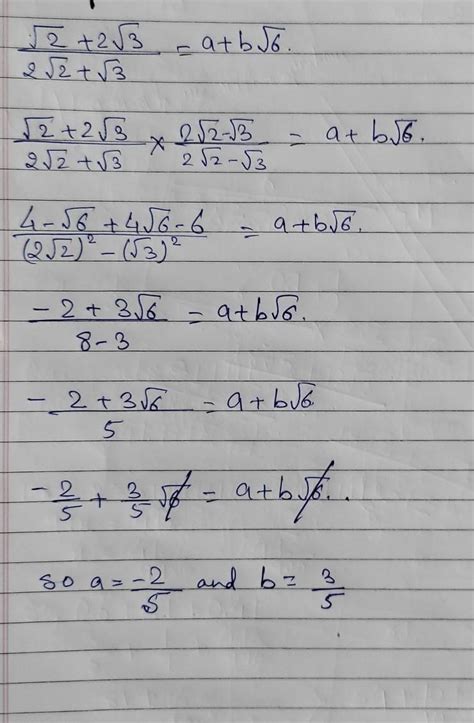 (√2 + 2√3)/(2√2 + √3) = a + b√6.
(√2 + 2√3)/(2√2 + √3) × (2√2 - √3)/(2√2 - √3) = a + b√6.
(4 - √6 + 4√6 - 6)/((2√2)² - (√3)²) = a + b√6.
(-2 + 3√6)/(8 - 3) = a + b√6.
- (2 + 3√6)/5 = a + b√6
-2/5 + 3/5 √6 = a + b√6..
so a = -2/5 and b = 3/5